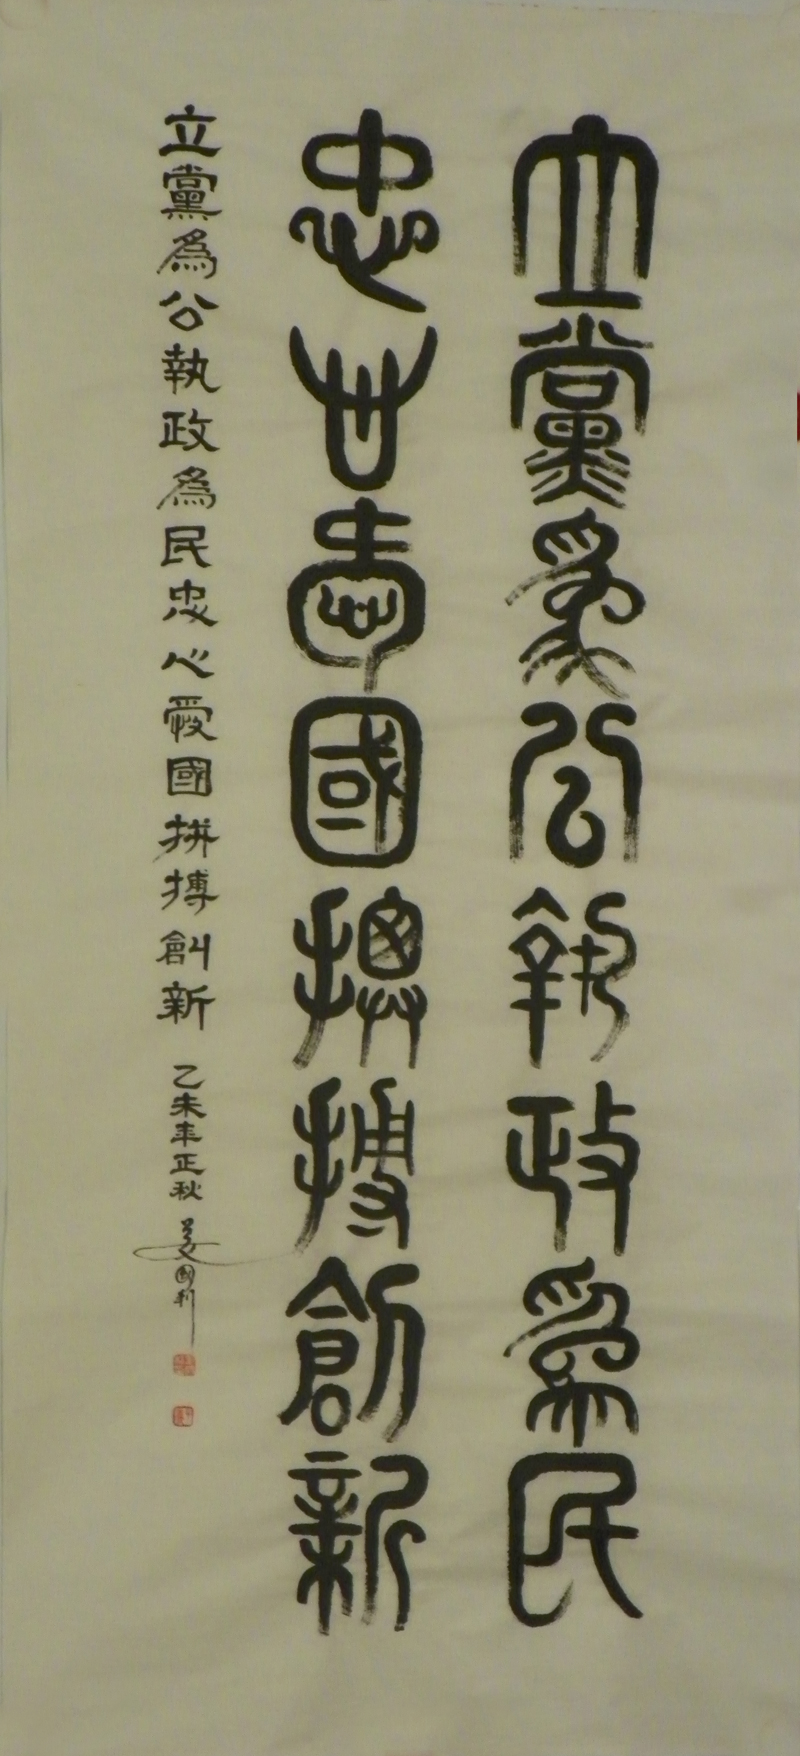 立黨為公執政為民
忠心愛國拼搏創新
立黨為公執政為民忠心愛國拼搏創新
乙未年正秋 姜國利